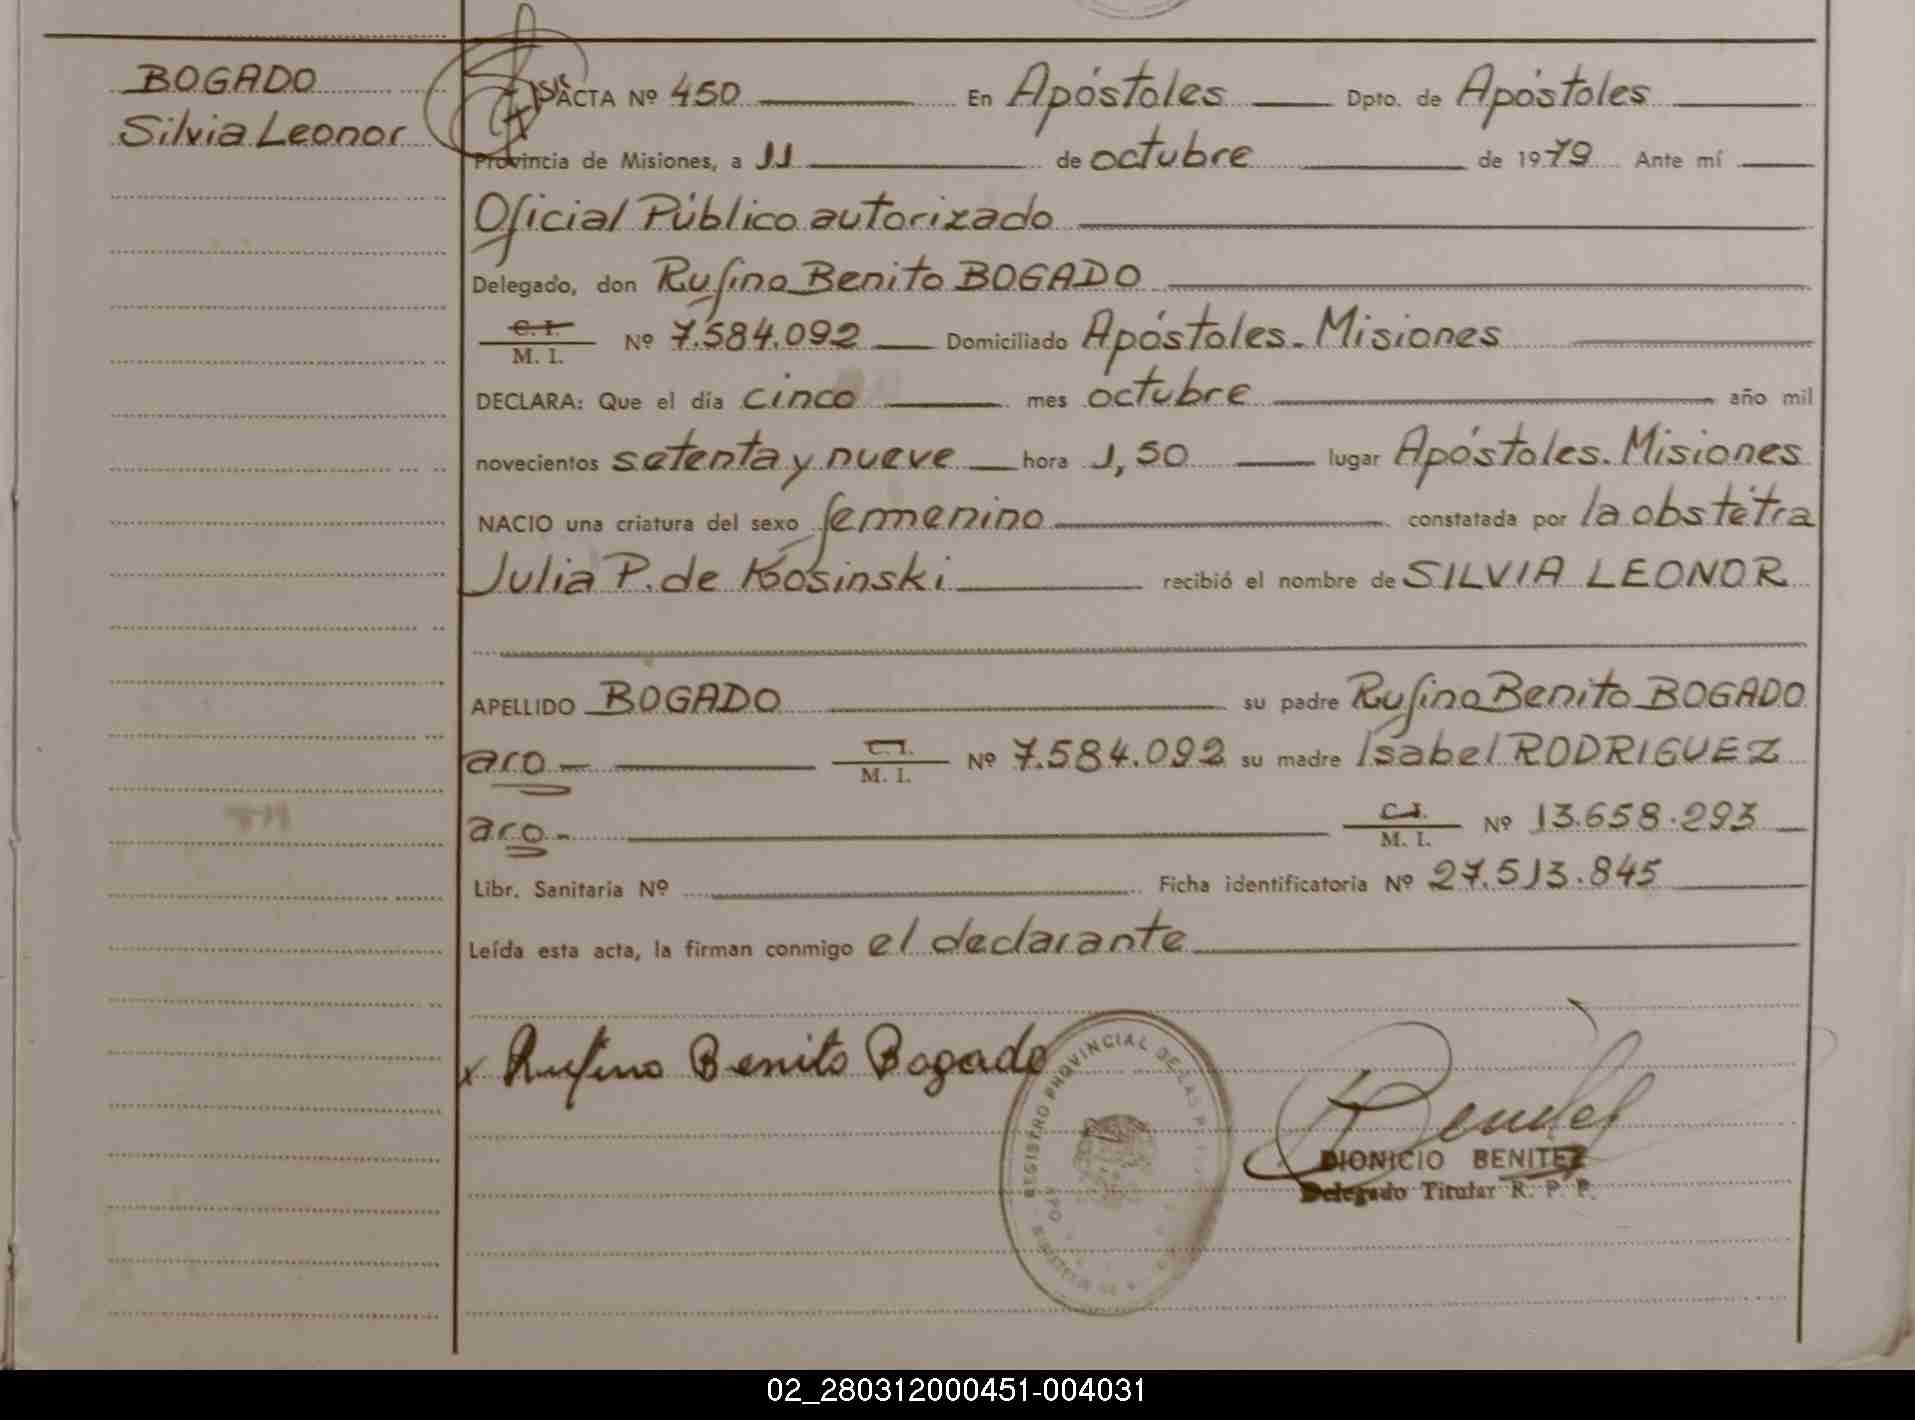 BOGADO
Silvia Leonor
ACTA Nº 450 En Apóstoles Dpto. de Apóstoles
Provincia de Misiones, a 11 de octubre de 1979 Ante mí
Oficial Público autorizado
Delegado, don Rufino Benito BOGADO
C. I.
M. I. Nº 7.584.092 Domiciliado Apóstoles. Misiones
DECLARA: Que el día cinco mes octubre año mil
novecientos setenta y nueve hora 1,50 lugar Apóstoles. Misiones
NACIO una criatura del sexo femenino constatada por la obstétra
Julia P. de Kosinski recibió el nombre de SILVIA LEONOR
APELLIDO BOGADO su padre Rufino Benito BOGADO
aro- C. I.
M. I. Nº 7.584.092 su madre Isabel RODRIGUEZ
aro- C. I.
M. I. Nº 13.658.293
Libr. Sanitaria Nº Ficha identificatoria Nº 27.513.845
Leída esta acta, la firman conmigo el declarante
x Rufino Benito Bogado
REGISTRO PROVINCIAL DE LAS
DIONICIO BENITEZ
Delegado Titular R. P. P.
02_280312000451-004031